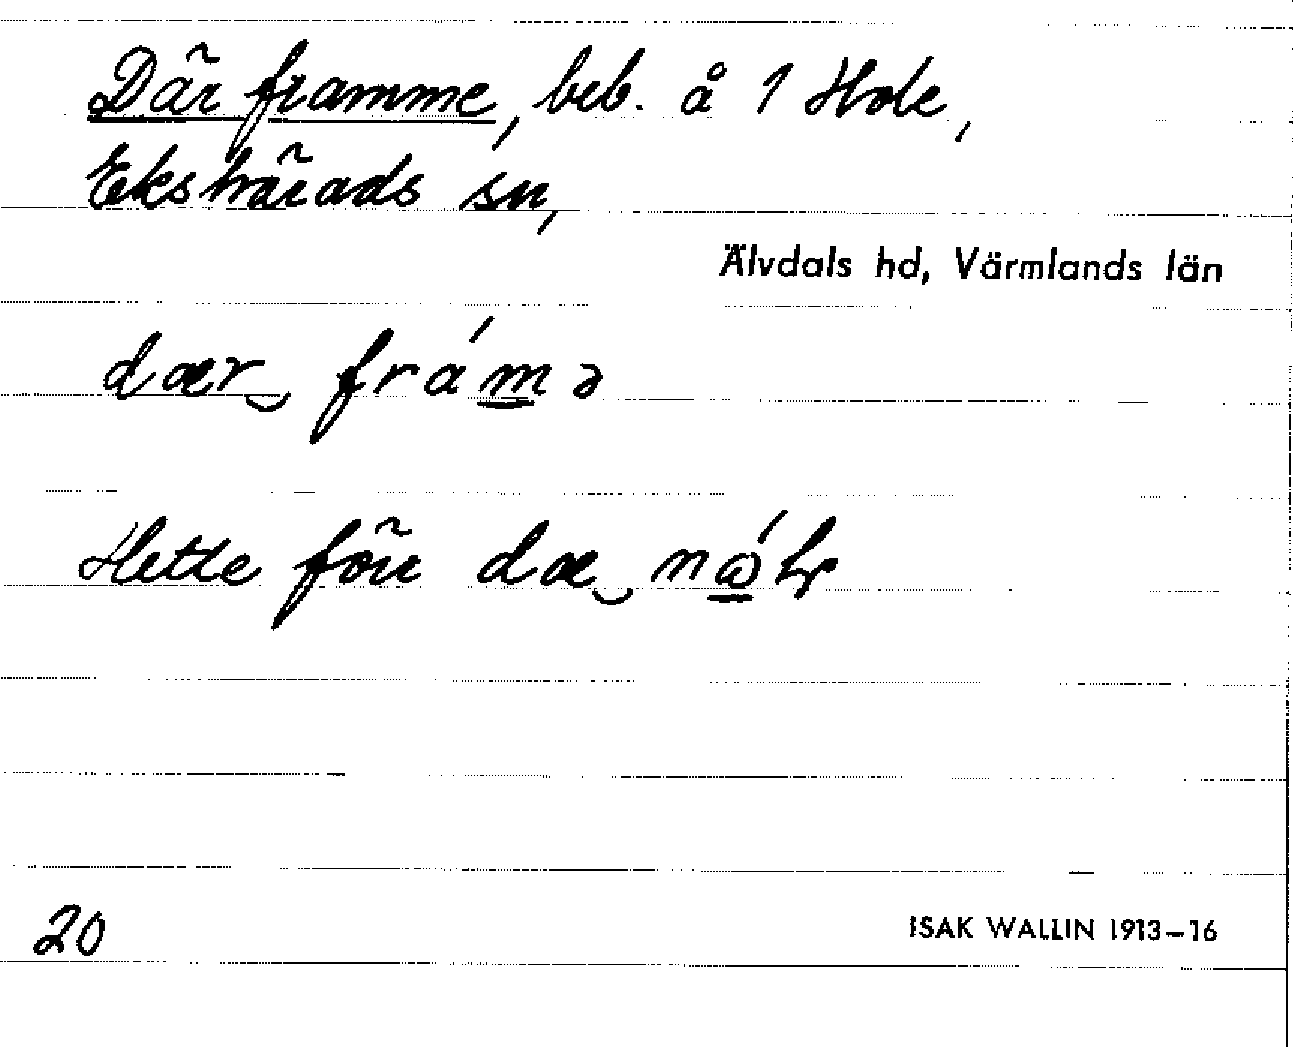 Där framme, beb. å 1 Hole,
Ekshärads sn,
Älvdals hd, Värmlands län
dær‿ fra´m̲ə
Hette förr dæ‿
20
ISAK WALLIN 1913–16